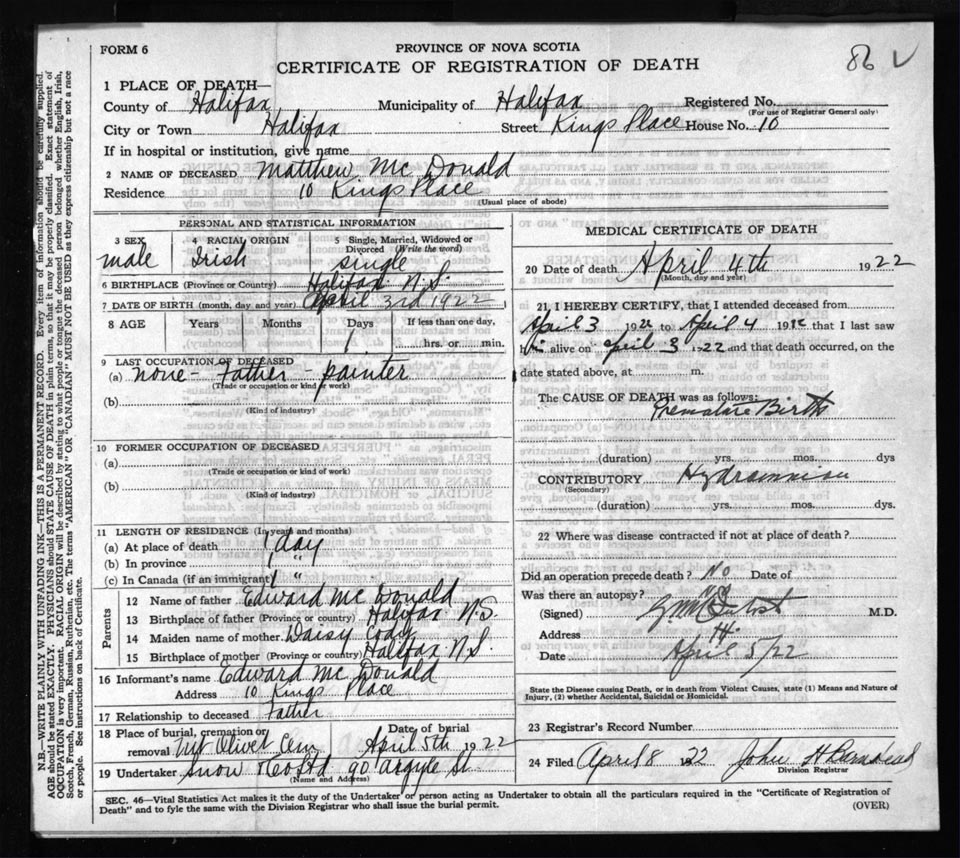 FORM 6
PROVINCE OF NOVA SCOTIA
CERTIFICATE OF REGISTRATION OF DEATH
86 V
1 PLACE OF DEATH—
County of Halifax Municipality of Halifax Registered No.
(For use of Registrar General only)
City or Town Halifax Street Kings Place House No. 10
If in hospital or institution, give name
2 NAME OF DECEASED Matthew Mc Donald
Residence 10 Kings Place
(Usual place of abode)
PERSONAL AND STATISTICAL INFORMATION
3 SEX 4 RACIAL ORIGIN 5 Single, Married, Widowed or
Divorced (Write the word)
male Irish single
6 BIRTHPLACE (Province or Country) Halifax N.S.
7 DATE OF BIRTH (month, day, and year) April 3rd 1922
8 AGE Years Months Days If less than one day,
1 hrs. or min.
9 LAST OCCUPATION OF DECEASED
(a) none - Father - painter
(Trade or occupation or kind of work)
(b)
(Kind of industry)
10 FORMER OCCUPATION OF DECEASED
(a)
(Trade or occupation or kind of work)
(b)
(Kind of industry)
11 LENGTH OF RESIDENCE (In years and months)
(a) At place of death 1 day
(b) In province 1 "
(c) In Canada (if an immigrant) 1 "
Parents
12 Name of father Edward Mc Donald
13 Birthplace of father (Province or country) Halifax N.S.
14 Maiden name of mother Daisy
15 Birthplace of mother (Province or country) Halifax N.S.
16 Informant's name Edward Mc Donald
Address 10 Kings Place
17 Relationship to deceased Father
18 Place of burial, cremation or Date of burial
removal Mt Olivet Cem April 5th 1922
19 Undertaker Snow & Co Ltd 90 Argyle St
(Name and Address)
MEDICAL CERTIFICATE OF DEATH
20 Date of death April 4th 1922
(Month, day and year)
21, I HEREBY CERTIFY, that I attended deceased from
April 3 1922 to April 4 1922 that I last saw
him alive on April 3 1922 and that death occurred, on the
date stated above, at m.
The CAUSE OF DEATH was as follows:
Premature Birth
(duration) yrs. mos. dys
CONTRIBUTORY Hydramnios
(Secondary)
(duration) yrs. mos. dys.
22 Where was disease contracted if not at place of death?
Did an operation precede death? No Date of
Was there an autopsy? No
(Signed) M.D.
Address
Date April 5/22
State the Disease causing Death, or in death from Violent Causes, state (1) Means and Nature of
Injury, (2) whether Accidental, Suicidal or Homicidal.
23 Registrar's Record Number
24 Filed April 8 1922 John H Barnstead
Division Registrar
SEC. 46—Vital Statistics Act makes it the duty of the Undertaker or person acting as Undertaker to obtain all the particulars required in the "Certificate of Registration of
Death" and to fyle the same with the Division Registrar who shall issue the burial permit.
(OVER)
N.B.—WRITE PLAINLY WITH UNFADING INK—THIS IS A PERMANENT RECORD. Every item of information should be carefully supplied.
AGE should be stated EXACTLY. PHYSICIANS should STATE CAUSE OF DEATH in plain terms, so that it may be properly classified. Exact statement of
OCCUPATION is very important. RACIAL ORIGIN will be described by stating to what people or tongue the deceased person belonged, whether English, Irish,
Scotch, French, German, Russian, Ruthenian, etc. The terms "AMERICAN" or "CANADIAN" MUST NOT BE USED as they express citizenship but not a race
or people. See instructions on back of Certificate.